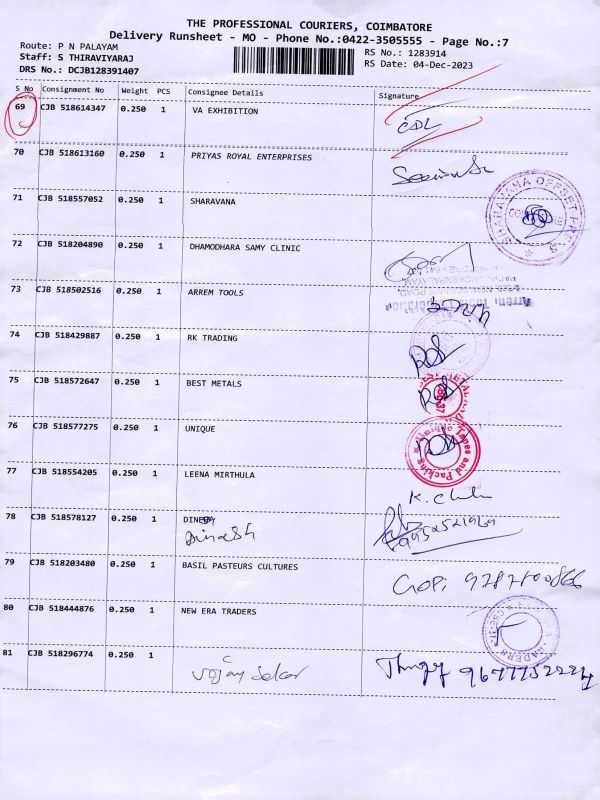 THE PROFESSIONAL COURIERS, COIMBATORE
Delivery Runsheet - MO - Phone No.:0422-3505555 - Page No.:7
Route: P N PALAYAM
RS No.: 1283914
Staff: S THIRAVIYARAJ
RS Date: 04-Dec-2023
DRS No.: DCJB128391407
S No Consignment No Weight PCS Consignee Details Signature
69 CJB 518614347 0.250 1 VA EXHIBITION
70 CJB 518613160 0.250 1 PRIYAS ROYAL ENTERPRISES
71 CJB 518557052 0.250 1 SHARAVANA
72 CJB 518204890 0.250 1 DHAMODHARA SAMY CLINIC
73 CJB 518502516 0.250 1 ARREM TOOLS
74 CJB 518429887 0.250 1 RK TRADING
75 CJB 518572647 0.250 1 BEST METALS
76 CJB 518577275 0.250 1 UNIQUE
77 CJB 518554205 0.250 1 LEENA MIRTHULA
78 CJB 518578127 0.250 1 DINESH
Dinesh
79 CJB 518203480 0.250 1 BASIL PASTEURS CULTURES
80 CJB 518444876 0.250 1 NEW ERA TRADERS
81 CJB 518296774 0.250 1 Vijay Sekar